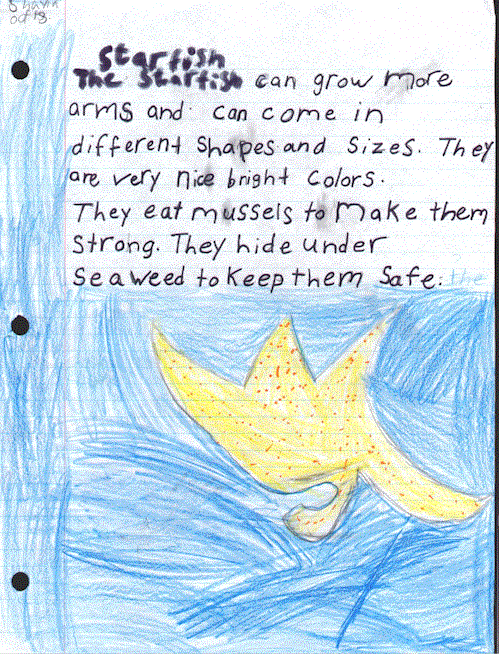 oct 18
Starfish
The Starfish can grow more
arms and can come in
different Shapes and Sizes. They
are very nice bright Colors.
They eat mussels to Make them
Strong. They hide under
Seaweed to Keep them Safe. the